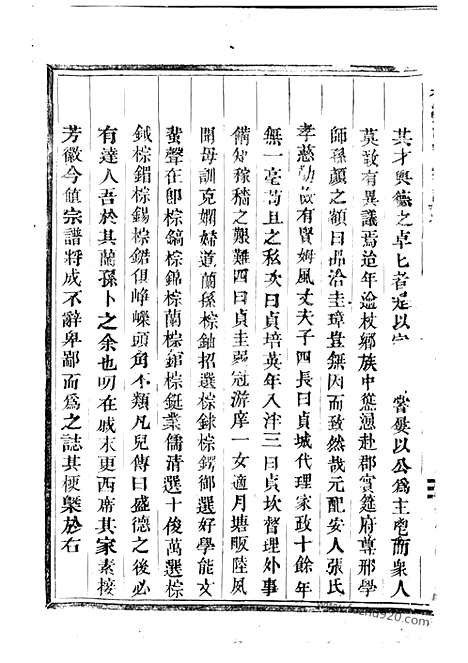 其才與德之卓七者 以 嘗 以公為主 而衆人
莫敢有異議焉迨年逾杖鄉族中慫慂赴郡賓筵府尊邢學
師孫顏之額曰品洽圭璋豈無因而致然哉元配安人張氏
孝慈勤儉有賢姆風丈夫子四長曰貞城代理家政十餘年
無一毫苟且之私次曰貞培英年入泮三曰貞坎督理外事
備知稼穡之艱難四曰貞圭弱冠游庠一女適月塘販陸夙
開母訓克嫻婦道蘭孫棕鈾招選棕銶棕鍔御選好學能文
蜚聲在即棕鎬棕錦棕蘭棕錧棕鋌業儒清選十俊萬選棕
鉞棕鍿棕錫棕鍩俱崢嶸頭角不類凡兒傳曰盛德之後必
有達人吾於其蘭孫卜之余也叨在戚末更西席其家素接
芳徽今值宗譜將成不辭卑鄙而為之誌其梗槩於右
www.fozhu920.com